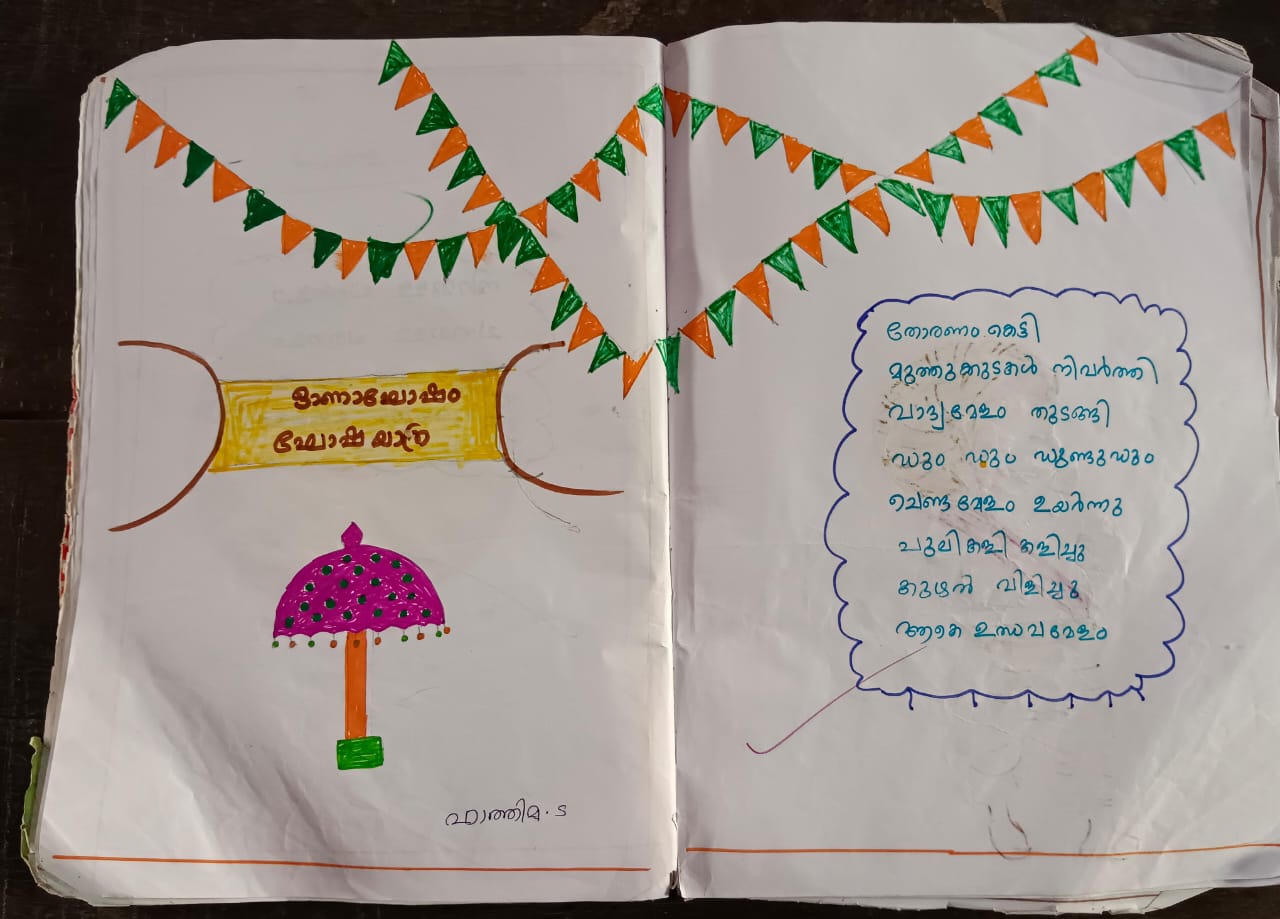 ഓണാഘോഷം
ഘോഷ യാത്ര
ഫാത്തിമ. ട
തോരണം കെട്ടി
മുത്തുക്കുടകൾ നിവർത്തി
വാദ്യമേളം തുടങ്ങി
ഡും ഡും ഡുണ്ടുഡും
ചെണ്ടമേളം ഉയർന്നു
പുലികളി കളിച്ചു
കുഴൽ വിളിച്ചു
ആകെ ഉത്സവമേളം